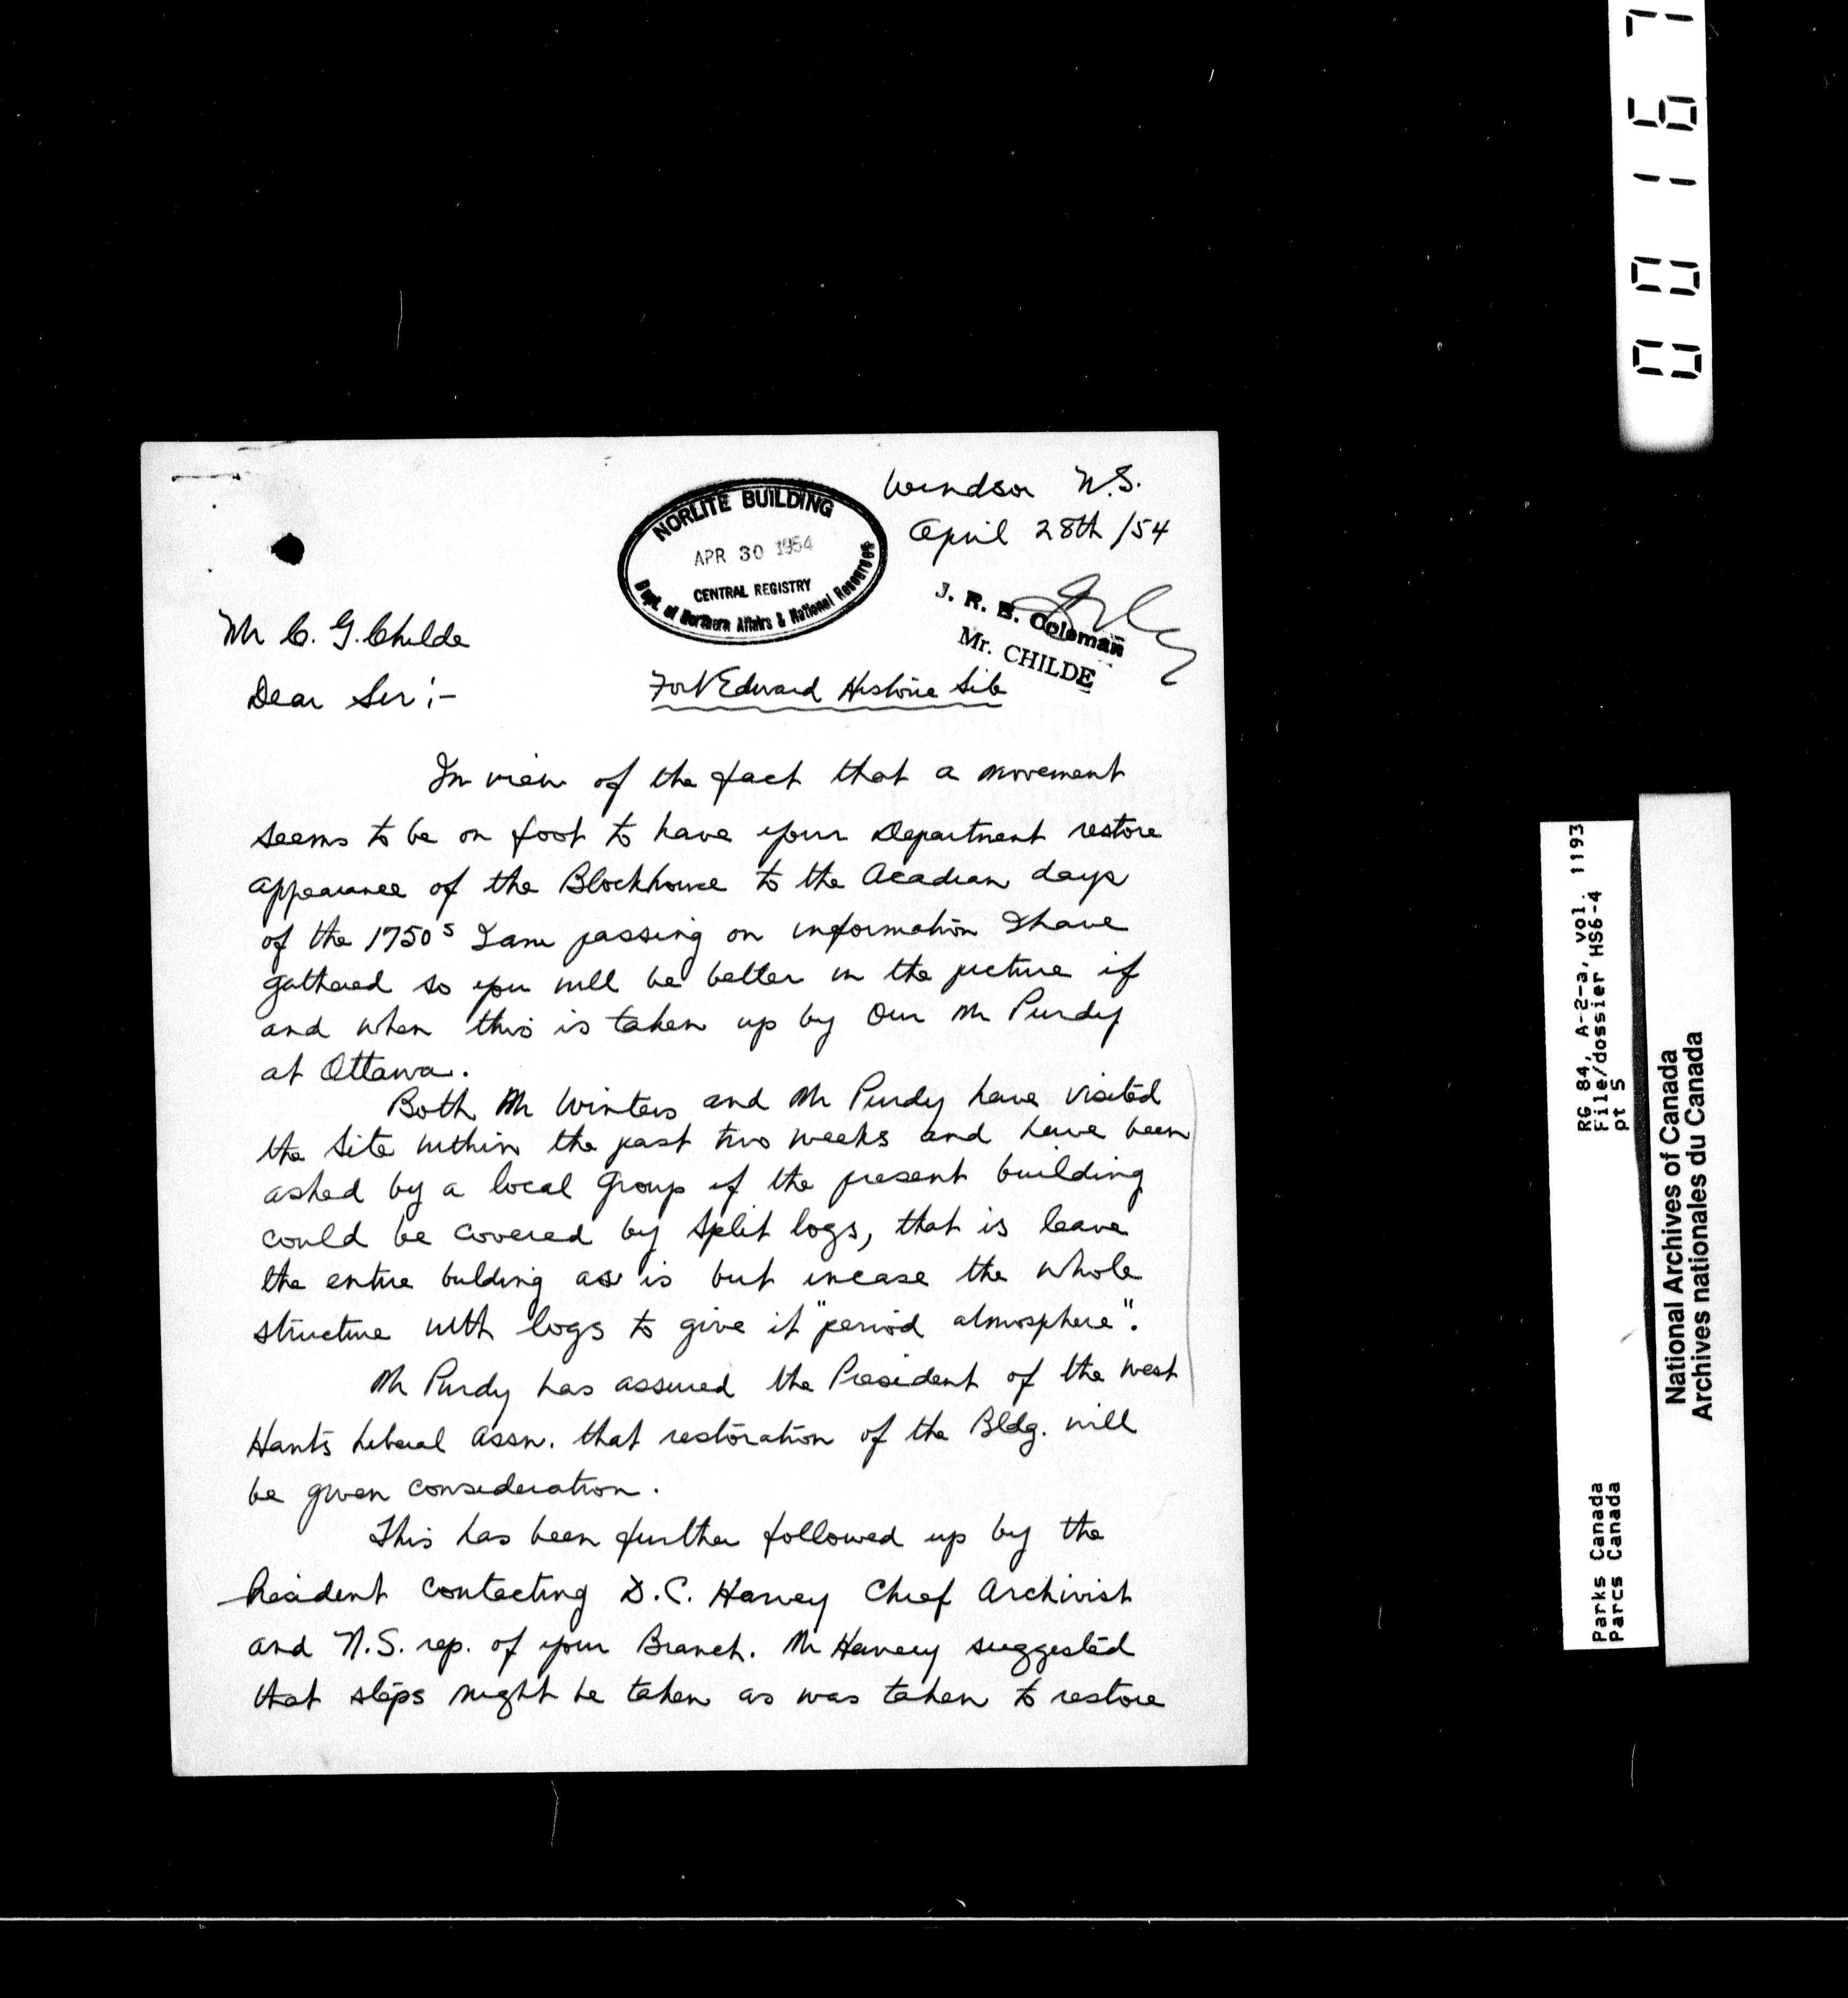 Windsor N.S.
April 28th /54
NORLITE BUILDING
APR 30 1954
CENTRAL REGISTRY
Dept. of Northern Affairs & National Resources
J. R. B. Coleman
Mr. CHILDE
Mr C. G. Childe
Dear Sir:-
Fort Edward Historic Site
In view of the fact that a movement
seems to be on foot to have your Department restore
appearance of the Blockhouse to the Acadian days
of the 1750s I am passing on information I have
gathered so you will be better in the picture if
and when this is taken up by Our Mr Purdy
at Ottawa.
Both Mr Winters and Mr Purdy have visited
the Site within the past two weeks and have been
asked by a local Group if the present building
could be covered by split logs, that is leave
the entire bulding as is but incase the whole
structure with logs to give it "period atmosphere".
Mr Purdy has assured the President of the West
Hants Liberal Assn. that restoration of the Bldg. will
be given consideration.
This has been further followed up by the
President contacting D.C. Harvey Chief Archivist
and N.S. rep. of your Branch. Mr Harvey suggested
that steps might be taken as was taken to restore
000167
RG 84, A-2-a, vol. 1193
File/dossier HS6-4
pt 5
Parks Canada
Parcs Canada
National Archives of Canada
Archives nationales du Canada